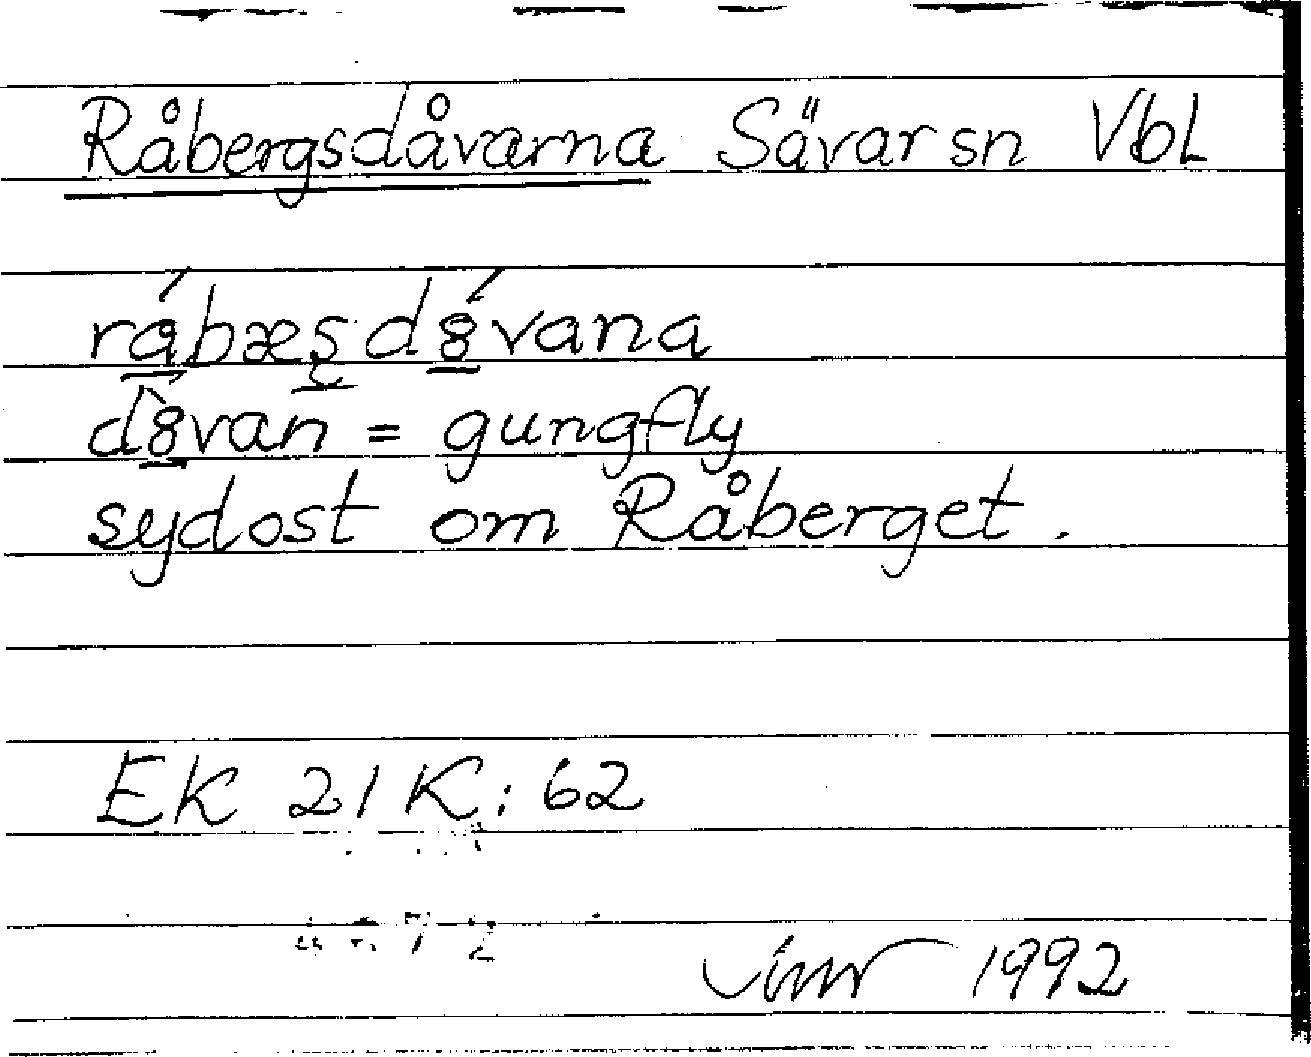 Råbergsdåvarna Sävar sn Vbl
rábæşdȣ́vana
dȣ̀van = gungfly
sydost om Råberget.
EK 21 K: 62
1992